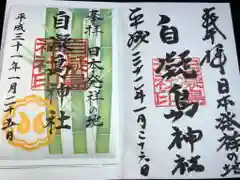 奉拝
日本発祥の地
自凝島神社
平成三十一年一月二十五日
奉拝
日本発祥の地
自凝島神社
平成三十一年一月二十六日